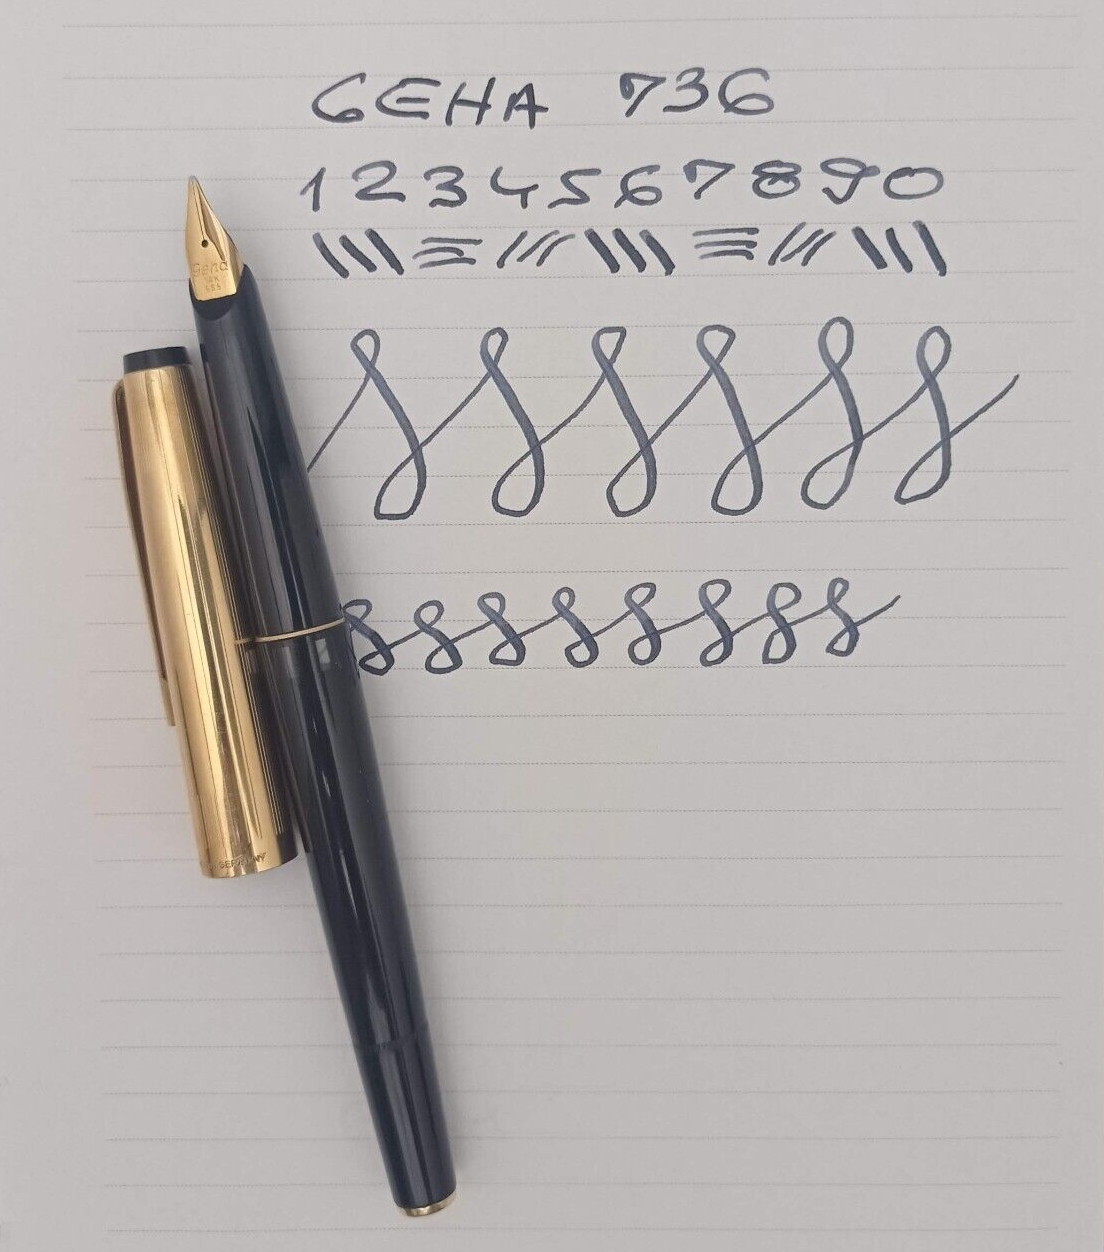 GEHA 736
1 2 3 4 5 6 7 8 9 0
Geha
14K
585
GERMANY